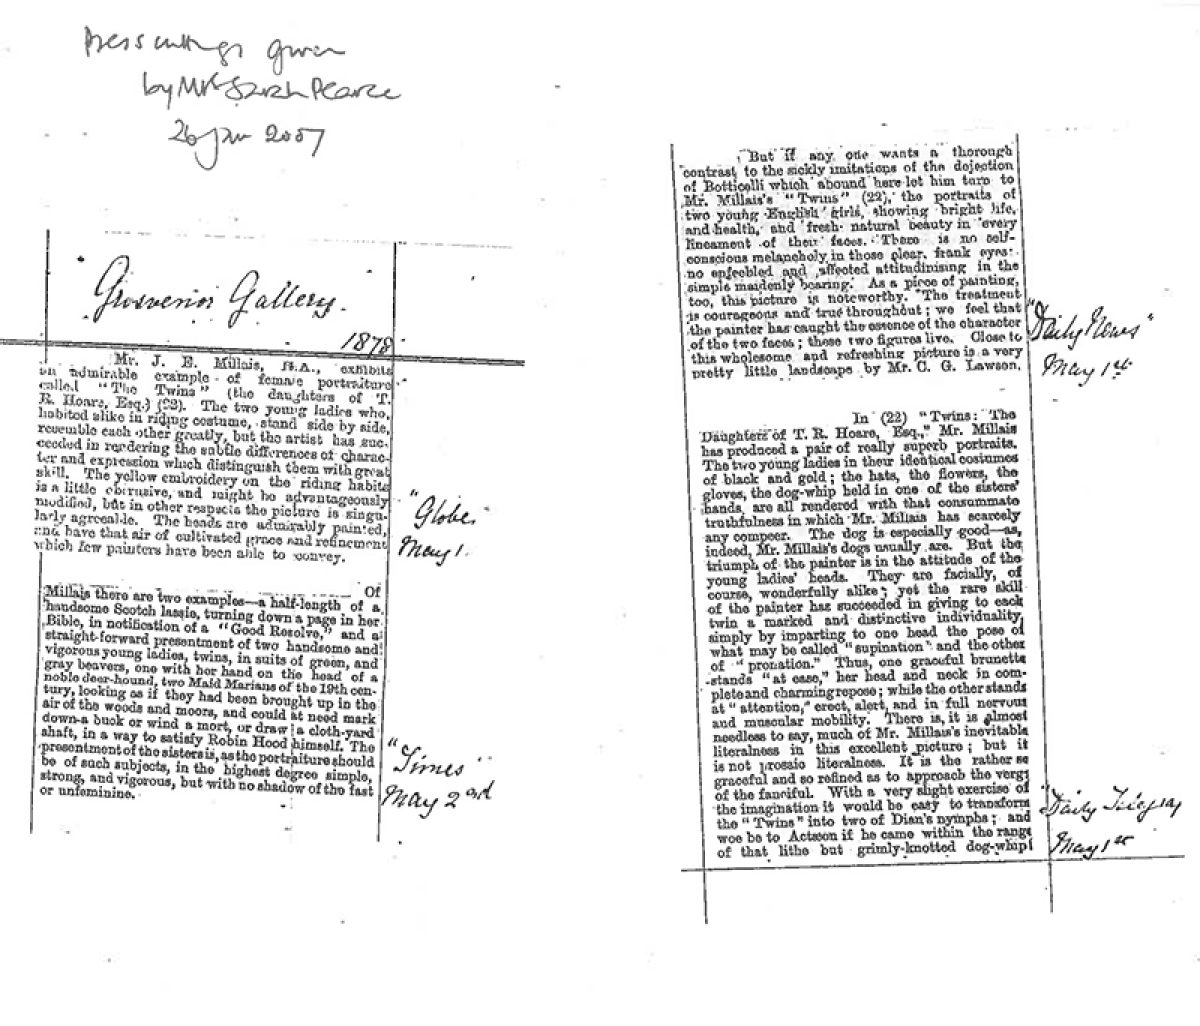 Press cuttings given
by Mrs Sarah Pearce
26 Jan 2007
Grosvenor Gallery.
1878
Mr. J. E. Millais, R.A., exhibits
an admirable example of female portraiture
called "The Twins" (the daughters of T.
R. Hoare, Esq.) (22). The two young ladies who,
habited alike in riding costume, stand side by side,
resemble each other greatly, but the artist has suc-
ceeded in rendering the subtle differences of charac-
ter and expression which distinguish them with great
skill. The yellow embroidery on the riding habits
is a little obtrusive, and might be advantageously
modified, but in other respects the picture is singu-
larly agreeable. The heads are admirably painted,
and have that air of cultivated grace and refinement
which few painters have been able to convey.
"Globe"
May 1.
Of
Millais there are two examples—a half-length of a
handsome Scotch lassie, turning down a page in her
Bible, in notification of a "Good Resolve," and a
straight-forward presentment of two handsome and
vigorous young ladies, twins, in suits of green, and
gray beavers, one with her hand on the head of a
noble deer-hound, two Maid Marians of the 19th cen-
tury, looking as if they had been brought up in the
air of the woods and moors, and could at need mark
down a buck or wind a mort, or draw a cloth-yard
shaft, in a way to satisfy Robin Hood himself. The
presentment of the sisters is, as the portraiture should
be of such subjects, in the highest degree simple,
strong, and vigorous, but with no shadow of the fast
or unfeminine.
"Times"
May 2nd
But if any one wants a thorough
contrast to the sickly imitations of the dejection
of Botticelli which abound here let him turn to
Mr. Millais's "Twins" (22), the portraits of
two young English girls, showing bright life,
and health, and fresh natural beauty in every
lineament of their faces. There is no self-
conscious melancholy in those clear, frank eyes:
no enfeebled and affected attitudinising in the
simple maidenly bearing. As a piece of painting,
too, this picture is noteworthy. The treatment
is courageous and true throughout; we feel that
the painter has caught the essence of the character
of the two faces; these two figures live. Close to
this wholesome and refreshing picture is a very
pretty little landscape by Mr. C. G. Lawson.
"Daily News"
May 1st
In (22) "Twins: The
Daughters of T. R. Hoare, Esq.," Mr. Millais
has produced a pair of really superb portraits.
The two young ladies in their identical costumes
of black and gold; the hats, the flowers, the
gloves, the dog-whip held in one of the sisters'
hands, are all rendered with that consummate
truthfulness in which Mr. Millais has scarcely
any compeer. The dog is especially good—as,
indeed, Mr. Millais's dogs usually are. But the
triumph of the painter is in the attitude of the
young ladies' heads. They are facially, of
course, wonderfully alike; yet the rare skill
of the painter has succeeded in giving to each
twin a marked and distinctive individuality,
simply by imparting to one head the pose of
what may be called "supination" and the other
of "pronation." Thus, one graceful brunette
stands "at ease," her head and neck in com-
plete and charming repose; while the other stands
at "attention," erect, alert, and in full nervous
and muscular mobility. There is, it is almost
needless to say, much of Mr. Millais's inevitable
literalness in this excellent picture; but it
is not prosaic literalness. It is the rather so
graceful and so refined as to approach the verge
of the fanciful. With a very slight exercise of
the imagination it would be easy to transform
the "Twins" into two of Dian's nymphs; and
woe be to Actæon if he came within the range
of that lithe but grimly-knotted dog-whip!
"Daily Telegraph
May 1st